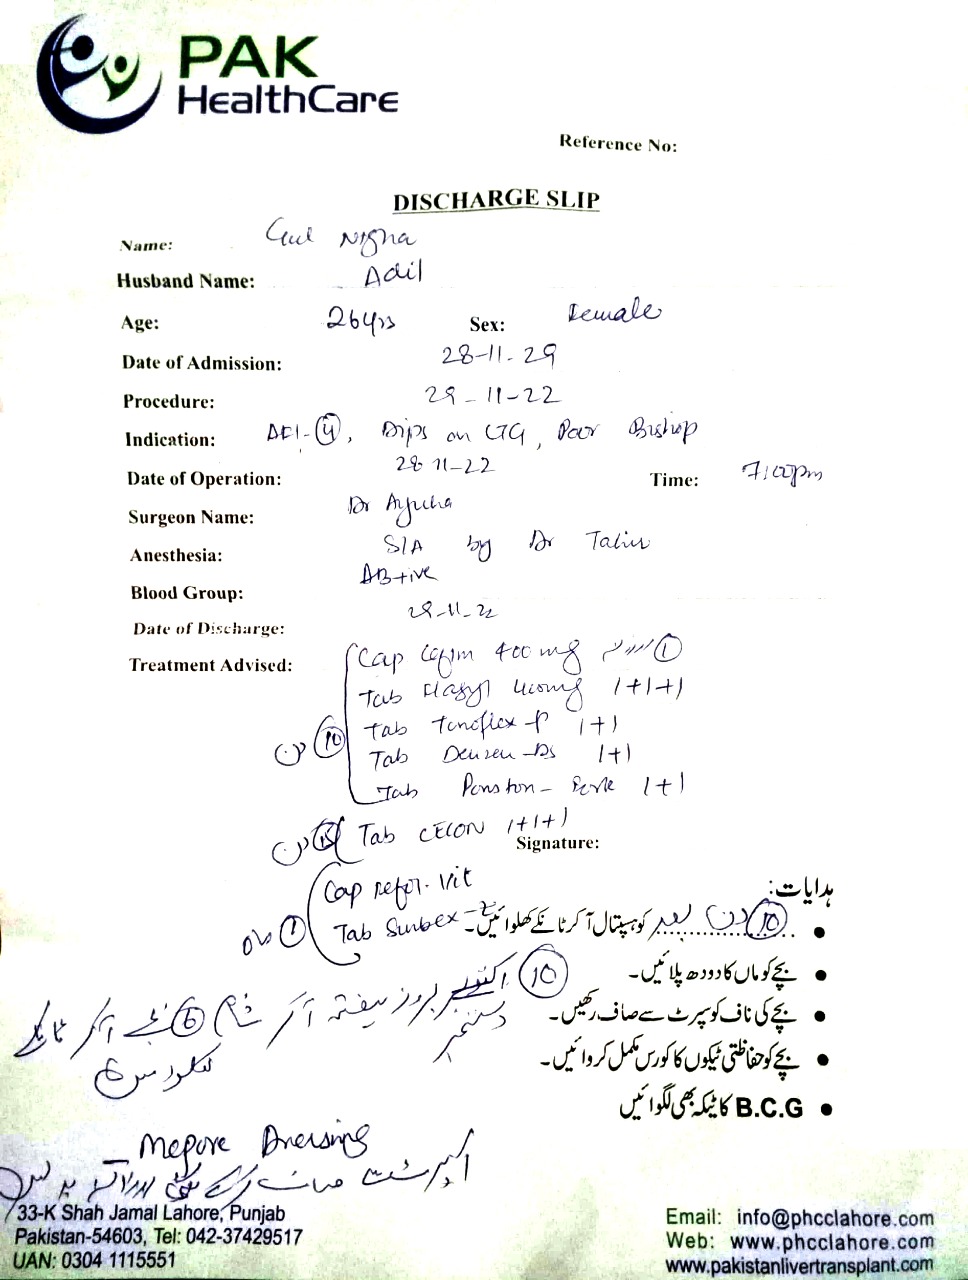 PAK
HealthCare
Reference No:
DISCHARGE SLIP
Name: Gul Nigha
Husband Name: Adil
Age: 26yrs Sex: Female
Date of Admission: 28-11-29
Procedure: 29-11-22
Indication: (4), Dips on CTG, Poor Bishop
Date of Operation: 28 11-22 Time: 7:00pm
Surgeon Name: Dr Ayesha
Anesthesia: S/A by Dr Tahir
Blood Group: AB+ive
Date of Discharge: 29-11-22
Treatment Advised: Cap Cefim 400mg روزانہ (1)
Tab Flagyl 400mg 1+1+1
Tab Tonoflex-P 1+1
دن (10) Tab Danzen-DS 1+1
Tab Ponston-Forte 1+1
دن (15) Tab CECON 1+1+1
Signature:
Cap Refor-Vit
ماہ (1) Tab Surbex-Z
ہدایات:
(10) دن بعد کو ہسپتال آ کر ٹانکے کھلوائیں۔
بچے کو ماں کا دودھ پلائیں۔
بچے کی ناف کو سپرٹ سے صاف رکھیں۔
بچے کو حفاظتی ٹیکوں کا کورس مکمل کروائیں۔
B.C.G کا ٹیکہ بھی لگوائیں
(10) اکتوبر بروز ہفتہ آکر شام (6) بجے آکر ٹانکے
دسمبر
Mepore Dressing
33-K Shah Jamal Lahore, Punjab
Pakistan-54603, Tel: 042-37429517
UAN: 0304 1115551
Email: info@phcclahore.com
Web: www.phcclahore.com
www.pakistanlivertransplant.com